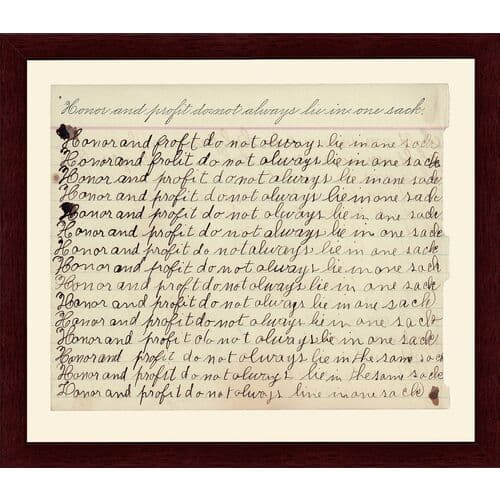 Honor and profit do not always lie in one sack.
Honor and proft do not always lie in one sack
Honor and profit do not always lie in one sack
Honor and profit do not always lie in one sack
Honor and profit do not always lie in one sack
Honor and profit do not always lie in one sack
Honor and profit do not always lie in one sack
Honor and profit do not always lie in one sack
Honor and profit do not always lie in one sack
Honor and profit do not always lie in one sack
Honor and profit do not always lie in one sack
Honor and profit do not always lie in one sack
Honor and profit do not always lie in one sack
Honor and profit do not always lie in the same sack
Honor and profit do not always lie in the same sack
Honor and profit do not always line in one sack